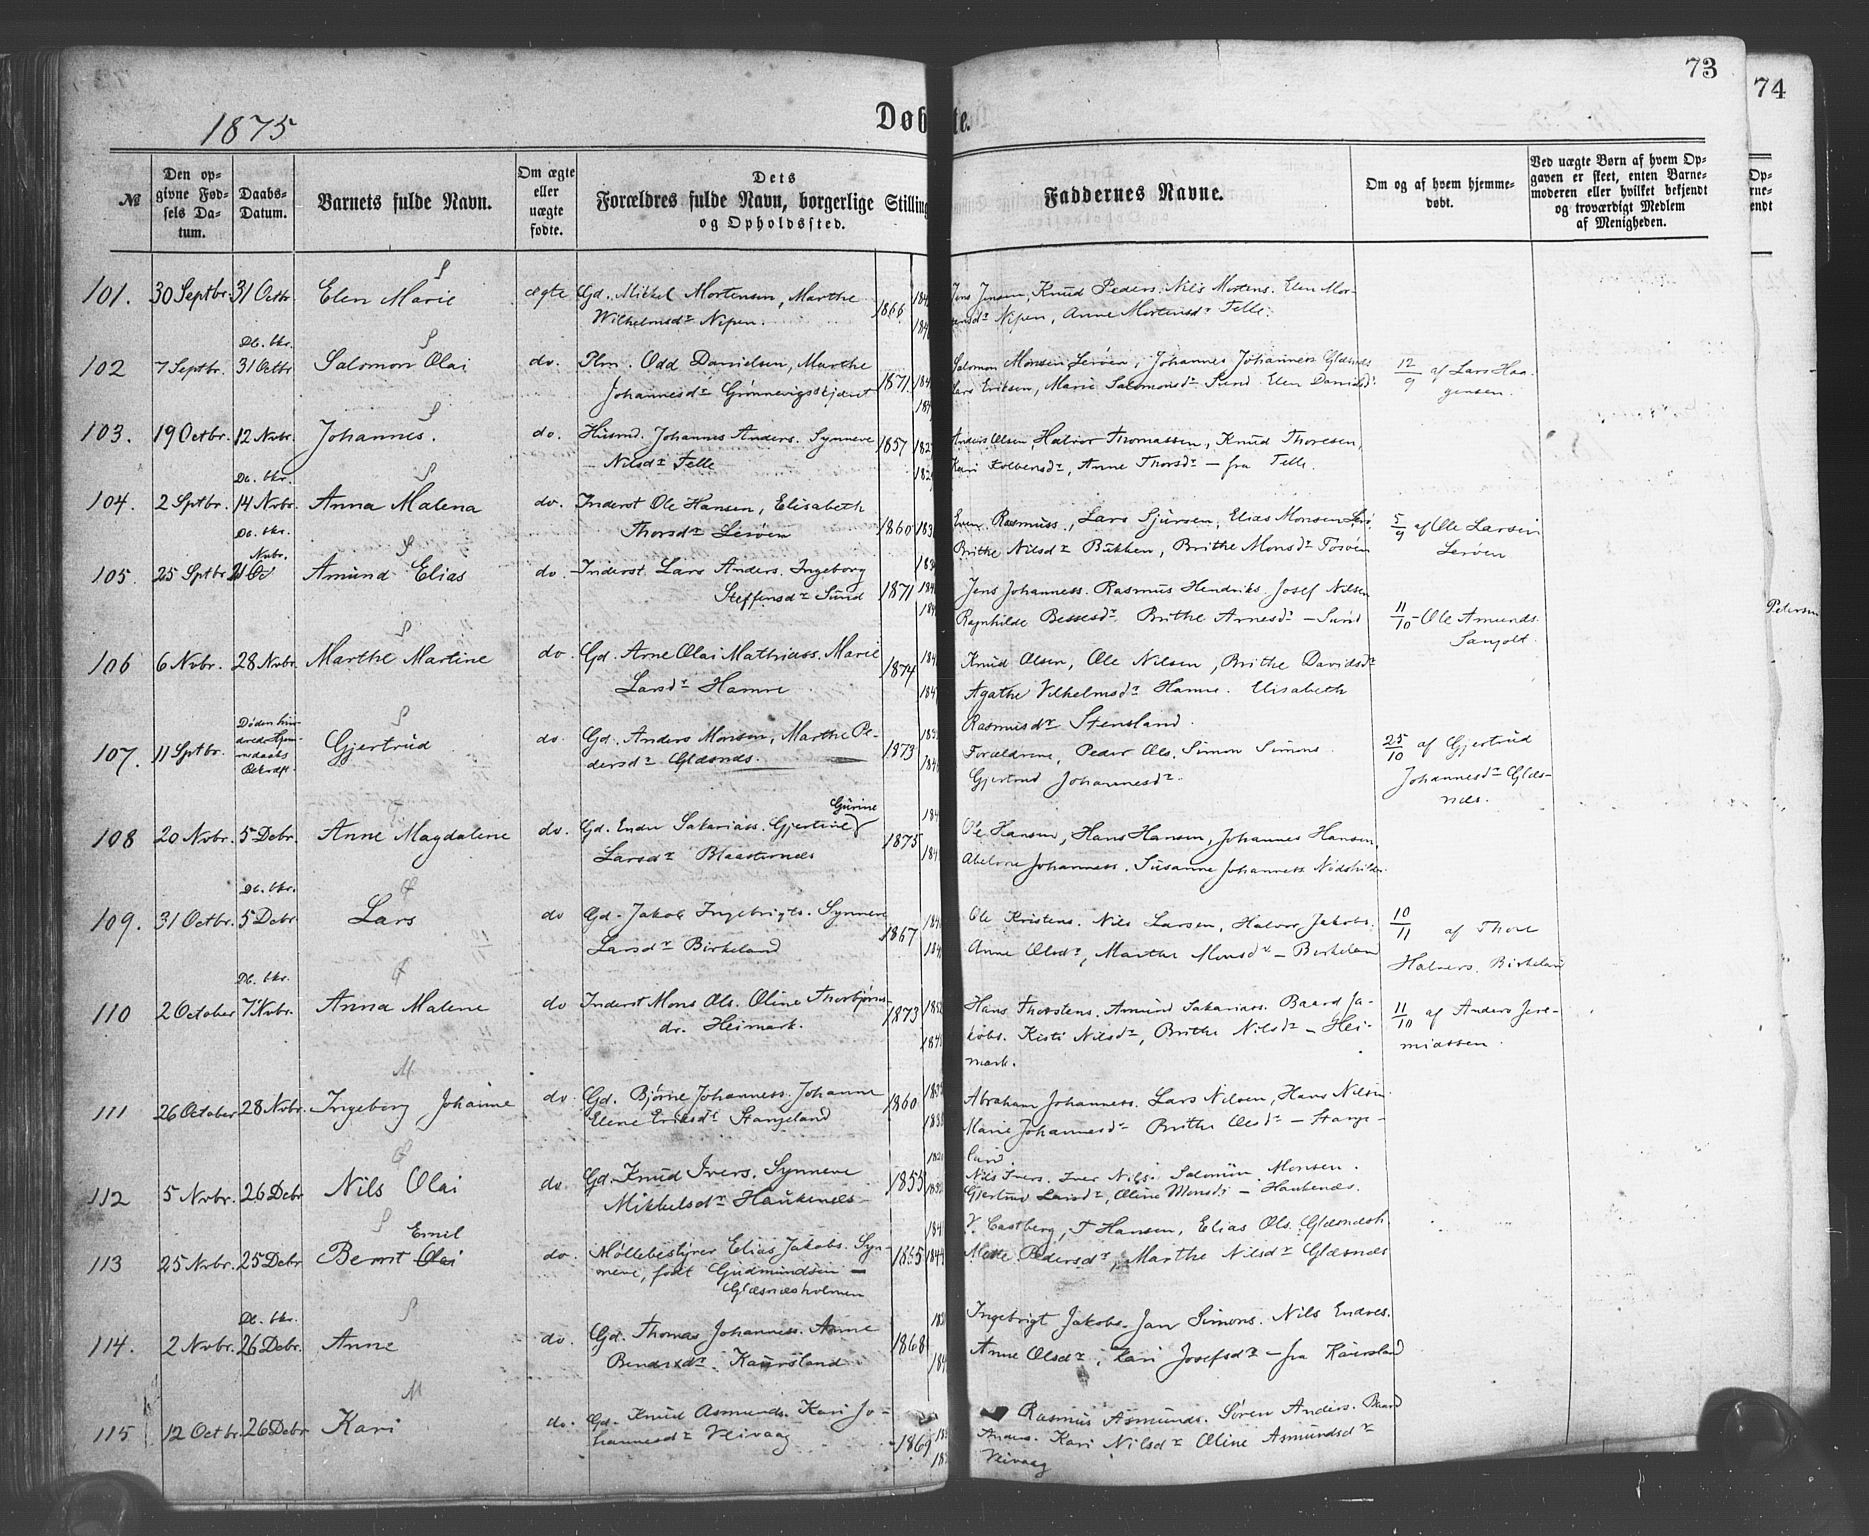 73
74
1875
Døbte.
№
Den op-
givne Fød-
sels Da-
tum.
Daabs-
Datum.
Barnets fulde Navn.
Om ægte
eller
uægte
fødte.
Dets
Forældres fulde Navn, borgerlige Stilling
og Opholdssted.
Faddernes Navne.
Om og af hvem hjemme-
døbt.
Ved uægte Børn af hvem Op-
gaven er skeet, enten Barne-
moderen eller hvilket bekjendt
og troværdigt Medlem
af Menigheden.
101. 30 Septbr. 31 Octbr. Elen Marie ægte Gd. Mikkel Mortensen, Marthe 1866
Wilhelmsdr Nipen.
Jens Jensen, Knud Peders. Nils Mortens. Elen Mor-
tensdr Nipen, Anne Mortensdr Telle.
Db. bkr.
102 7 Septbr. 31 Octbr Salomon Olai do. Plm. Odd Danielsen, Marthe 1871
Johannesdr Grønnevigsskjæret
Salomon Monsen Lerøen, Johannes Johanness Glæsnæs
Lars Eriksen, Marie Salomonsdr Sund. Elen Danielsdr
12/9 af Lars Haa-
gensen.
103. 19 Octbr. 12 Nvbr. Johannes. do. Husmd. Johannes Anders. Synneve 1857
Nilsdr Telle
Anders Olsen, Halvor Thomassen, Knud Thoresen,
Kari Kolbensdr, Anne Thorsdr - fra Telle.
Db. bkr.
104. 2 Sptbr. 14 Nvbr. Anna Malena do. Inderst Ole Hansen, Elisabeth 1860
Thorsdr Lerøen
Even Rasmuss., Lars Sjursen, Elias Monsen
Brithe Nilsdr Bukken, Brithe Monsdr Tosøen
5/9 af Ole Larsen
Lerøen
Db. bkr.
Nvbr.
105. 25 Sptbr 21 Amund Elias do. Inderst. Lars Anders. Ingeborg 1871
Steffensdr Sund
Jens Johanness. Rasmus Hendriks. Josef Nilsen
Ragnhilde Bessesdr. Brithe Arnesdr - Sund
11/10 - Ole Amunds.
Sangolt.
106 6 Nvbr. 28 Nvbr. Marthe Martine do. Gd. Arne Olai Mathiass. Marie 1874
Larsdr Hamre
Knud Olsen, Ole Nilsen, Brithe Davidsdr
Agathe Vilhelmsdr Hamre. Elisabeth
Rasmusdr Stensland.
107. 11 Sptbr. Døden hin-
drede
Gjertrud do. Gd. Anders Monsen, Marthe Pe- 1873
dersdr Glæsnæs.
Forældrene, Peder Ols. Simon Simons.
Gjertrud Johannesdr.
25/10 af Gjertrud
Johannesdr Glæs-
næs.
108 20 Nvbr. 5 Debr. Anne Magdalene do. Gd. Endre Sakariass. Gjertine Gurine 1875
Larsdr Blaasternæs
Ole Hansen, Hans Hansen, Johannes Hansen,
Abelone Johanness. Susanne Johanness
Db. bkr.
109. 31 Octbr. 5 Debr. Lars do Gd. Jakob Ingebrigts. Synneve 1867
Larsdr Birkeland
Ole Kristens. Nils Larsen, Halvor Jakobs.
Anne Olsdr, Marthe Monsdr - Birkeland
10/11 af Thore
Halvors. Birkeland
Db. bkr.
110 2 October 7 Nvbr. Anna Malene do Inderst Mons Ols. Oline Thorbjørns- 1873
dr. Heimark.
Hans Thorstens. Amund Sakariass. Baard Ja-
kobs. Kisti Nilsdr, Brithe Nilsdr - Hei-
mark.
11/10 af Anders Jere-
miassen.
111 26 October 28 Nvbr. Ingeborg Johanne do. Gd. Bjørne Johanness. Johanne 1860
Elene Eriksdr Stangeland
Abraham Johanness. Lars Nilsen, Hans Nilsen
Marie Johannesdr Brithe Olsdr - Stange-
land.
112 5 Nvbr. 26 Debr Nils Olai do. Gd. Knud Ivers. Synneve 1855
Mikkelsdr Haukenæs
Nils Ivers. Iver Nils. Salomon Monsen.
Gjertrud Larsdr, Oline Monsdr - Haukenæs.
113 25 Nvbr. 25 Debr Bernt Olai Emil do. Møllebestyrer Elias Jakobs. Syn- 1865
neve, født Gudmundsen -
Glæsnæsholmen
V. Castberg, T Hansen, Elias Ols. Glæsnæsh.
Mette Pedersdr, Marthe Nilsdr Glæsnæs
Db. bkr.
114. 2 Nvbr. 26 Debr. Anne do. Gd. Thomas Johanness. Anne 1868
Bendixdr. Kaursland
Ingebrigt Jakobs. Jan Simons. Nils Endres.
Anne Olsdr, Kari Josefsdr - fra Kaursland
115 12 Octbr. 26 Debr Kari do. Gd. Knud Asmunds. Kari Jo- 1869
hannesdr Veivaag
Rasmus Asmunds. Søren Anders. Baard
Anders. Kari Nilsdr Oline Asmundsdr
Veivaag
Petersen